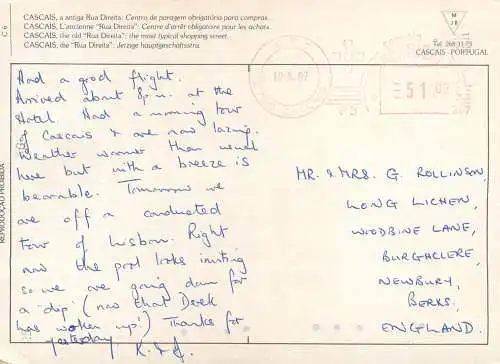 CASCAIS, a antiga Rua Direita: Centro de paragem obrigatória para compras.
CASCAIS, L'ancienne "Rua Direita": Centre d'arrêt obligatoire pour les achats.
CASCAIS, the old "Rua Direita": the most typical shopping street.
CASCAIS, die "Rua Direita": Jerzige hauptgeschaftsstra.
C 6
M
JR
Tel. 268 31 75
CASCAIS - PORTUGAL
REPRODUÇÃO PROIBIDA
51
Had a good flight.
Arrived about 8p.m. at the
Hotel. Had a morning tour
of Cascais & are now lazing.
Weather warmer than usual
here but with a breeze is
bearable. Tomorrow we
are off a conducted
tour of Lisbon. Right
now the pool looks inviting
so we are going down for
a 'dip' (now that Derek
has woken up!) Thanks for
yesterday K. & D.
MR. & MRS. G. ROLLINSON,
LONG LICHEN,
WOODBINE LANE,
BURGHCLERE,
NEWBURY,
BERKS,
ENGLAND.